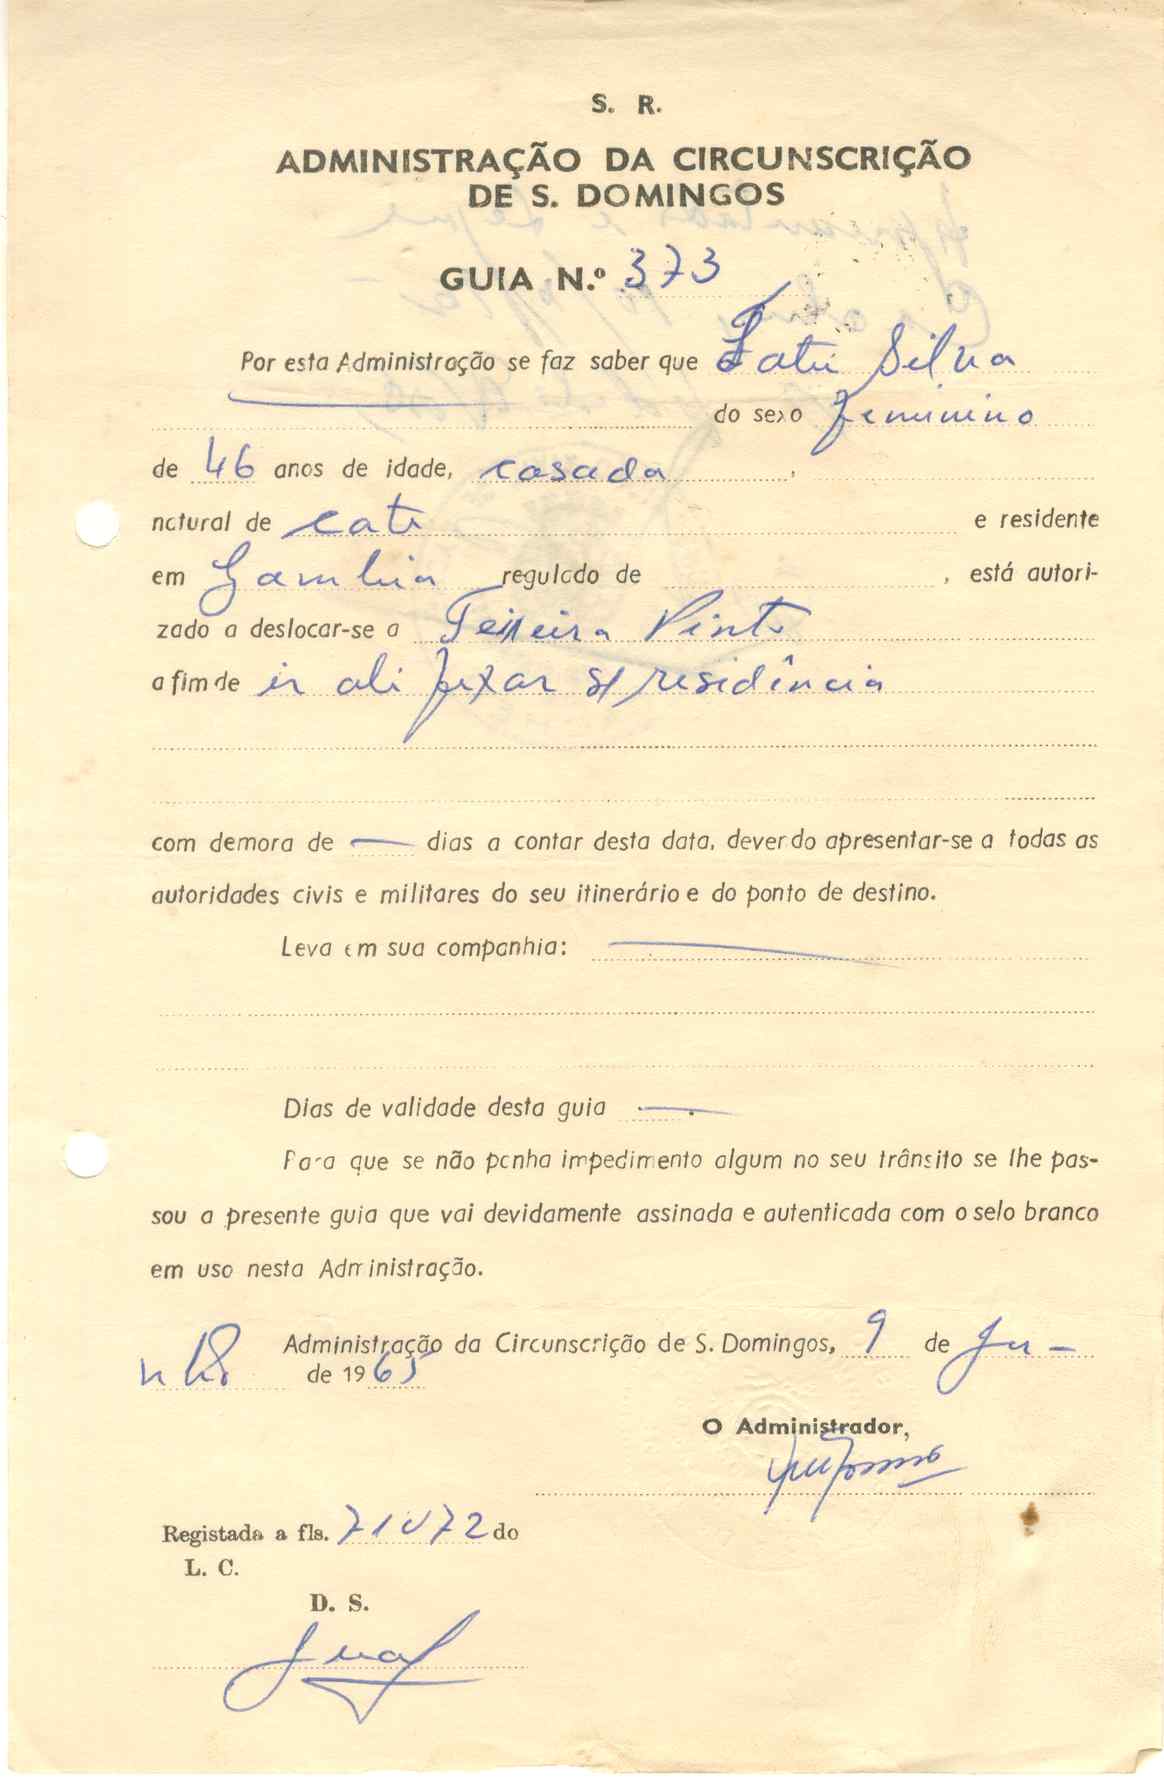 S. R.
ADMINISTRAÇÃO DA CIRCUNSCRIÇÃO
DE S. DOMINGOS
GUIA N.º 373
Por esta Administração se faz saber que Fatú Silva
do sexo feminino
de 46 anos de idade, casada,
natural de cati e residente
em Gambia regulado de , está autori-
zado a deslocar-se a Teixeira Pinto
a fim de ir ali fixar s/ residência
com demora de — dias a contar desta data, devendo apresentar-se a todas as
autoridades civis e militares do seu itinerário e do ponto de destino.
Leva em sua companhia: —
Dias de validade desta guia —.
Para que se não ponha impedimento algum no seu trânsito se lhe pas-
sou a presente guia que vai devidamente assinada e autenticada com o selo branco
em uso nesta Administração.
Administração da Circunscrição de S. Domingos, 9 de Ju-
nho de 1965
O Administrador,
Registada a fls. 71 v 72 do
L. C.
D. S.